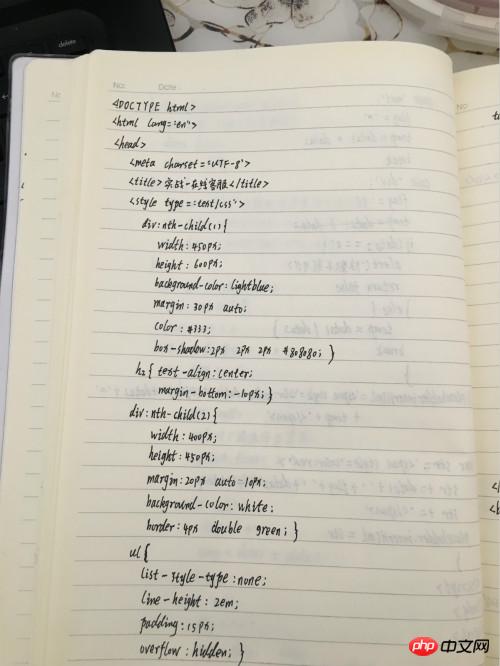 delete
No:
Date:
<DOCTYPE html>
<html lang="en">
<head>
<meta charset="UTF-8">
<title>实战-在线客服</title>
<style type="text/css">
div:nth-child(1){
width:450px;
height:600px;
background-color:lightblue;
margin:30px auto;
color:#333;
box-shadow:2px 2px 2px #808080; }
h2{ text-align:center;
margin-bottom:-10px; }
div:nth-child(2){
width:400px;
height:450px;
margin:20px auto 10px;
background-color:white;
border:4px double green; }
ul{
list-style-type:none;
line-height:2em;
padding:15px;
overflow:hidden; }
No
php中文网